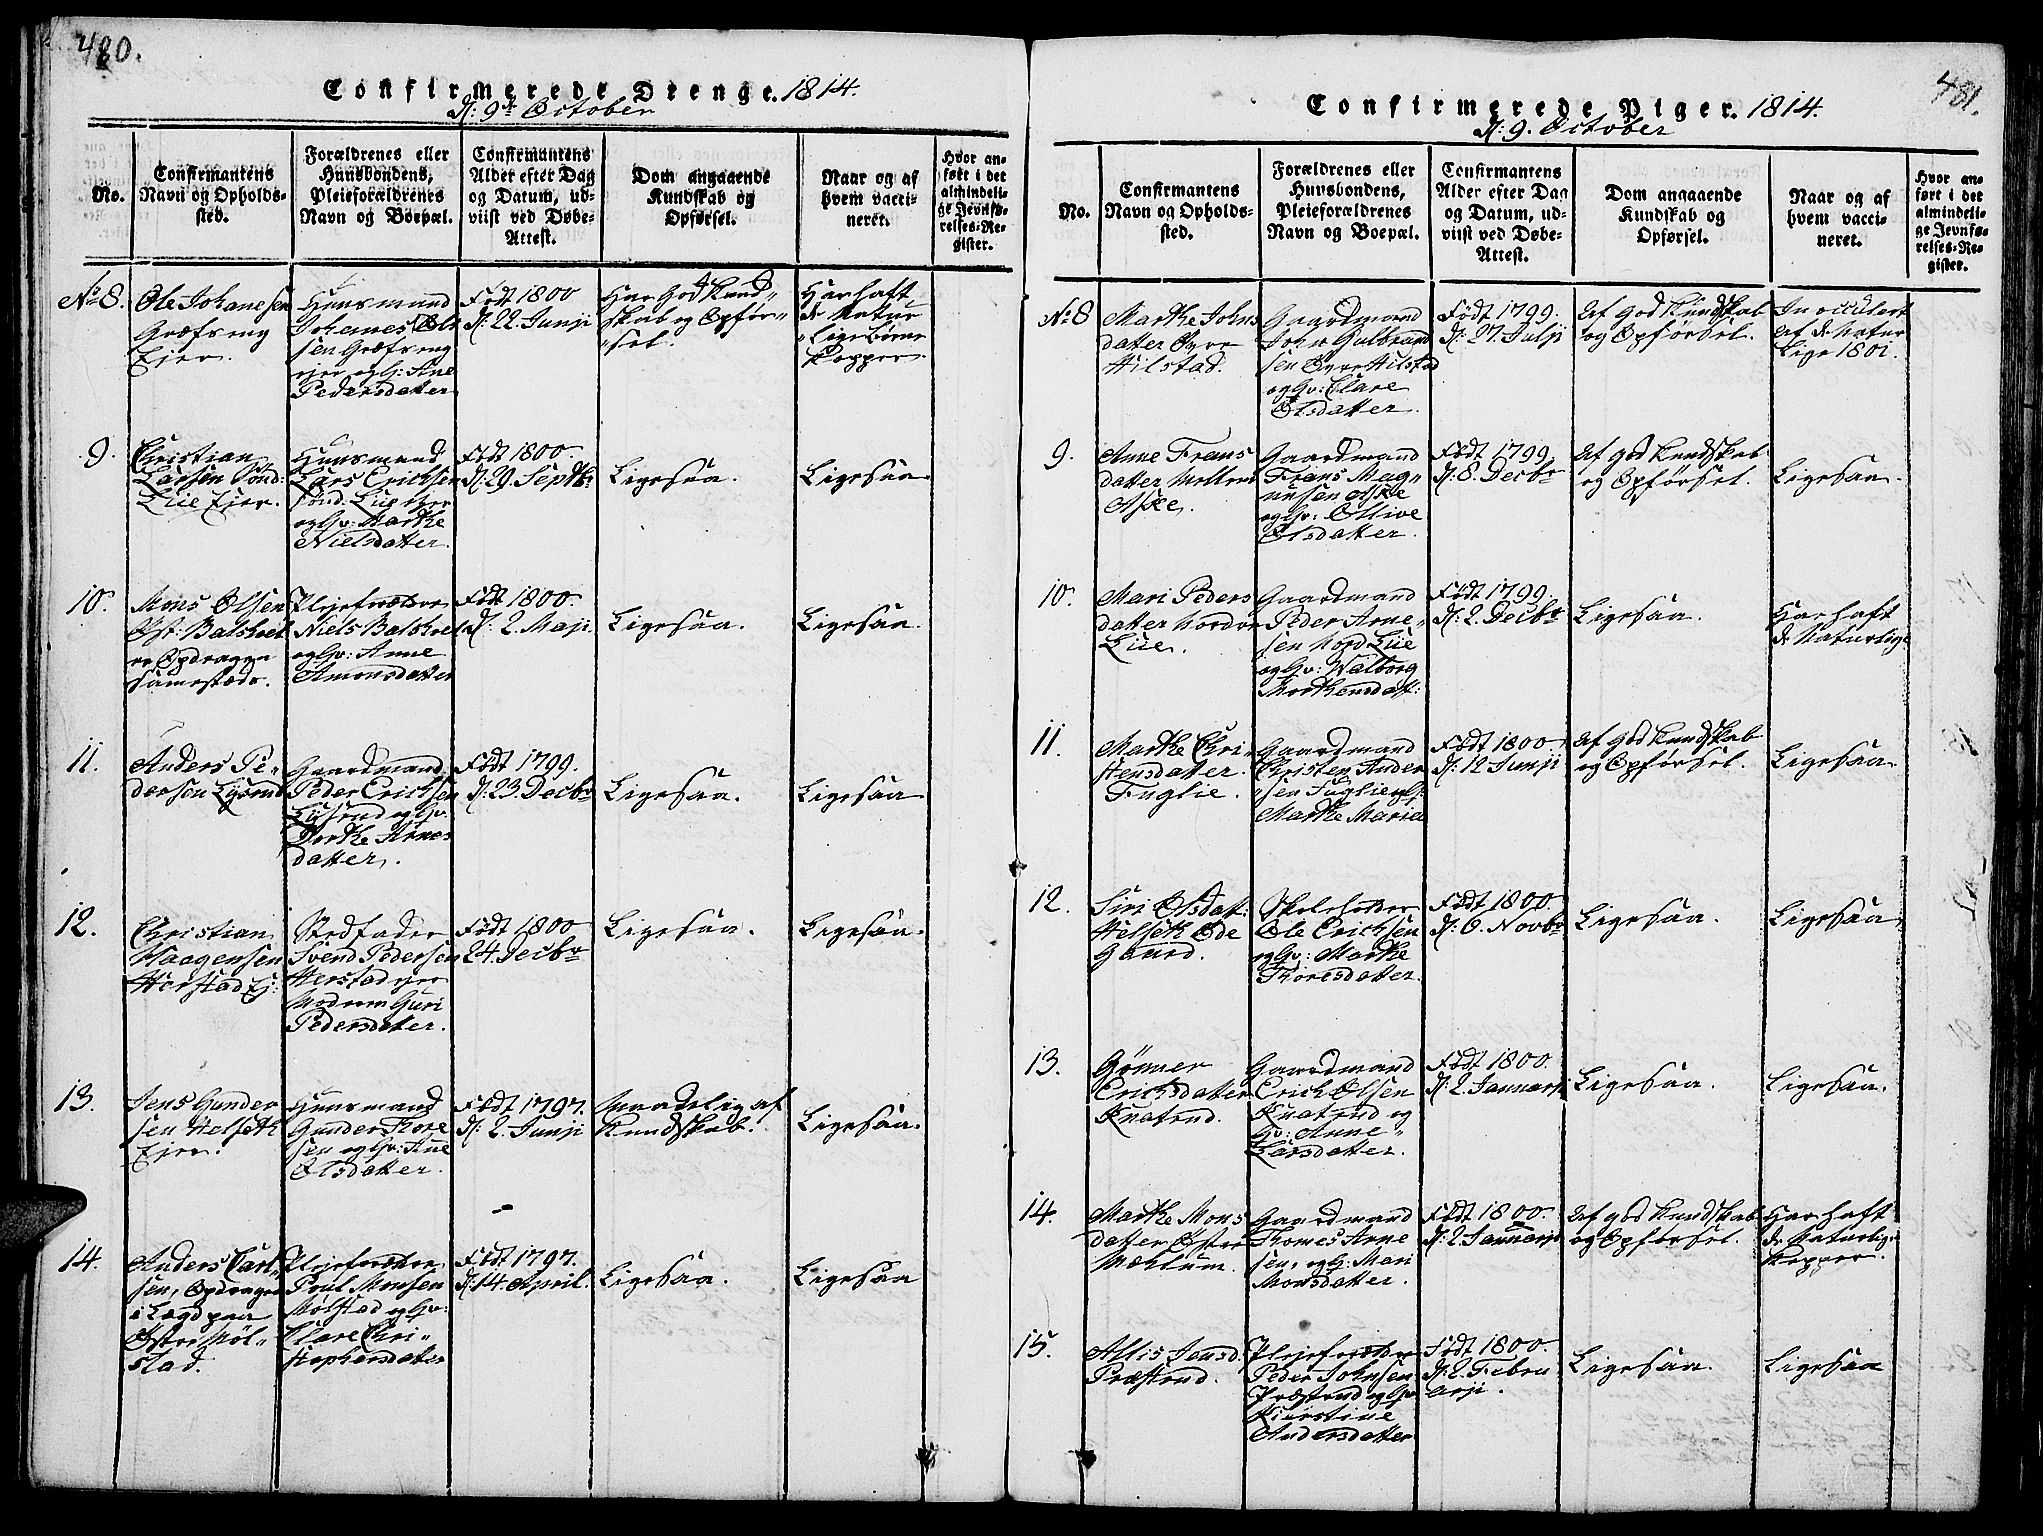 480.
Confirmerede Drenge. 1814.
d: 9de October
No.
Confirmantens
Navn og Opholds-
sted.
Forældrenes eller
Huusbondens,
Pleieforældrenes
Navn og Boepæl.
Confirmantens
Alder efter Dag
og Datum, ud-
viist ved Døbe-
Attest.
Dom angaaende
Kundskab og
Opførsel.
Naar og af
hvem vacci-
neret.
Hvor an-
ført i det
almindeli-
ge Jevnfø-
relses-Re-
gister.
No 8.
Ole Johanesen
Græfseng
Ejer.
Huusmand
Johanes Ols
sen Græfseng
ejer og G: Ane
Pedersdatter
Født 1800
d: 22 Junji
Har God Kund-
skab og Opfør-
sel.
Har haft
de Natur
lige Børne
Kopper.
9.
Christian
Larsen Sønd:
Liie Ejer.
Huusmand
Lars Erichsen
Sønd: Liie Ejer
og Gv: Marthe
Nielsdatter.
Født 1800.
d: 29. Septbr
Ligesaa.
Ligesaa.
10.
Mons Olsen
Øst: Balshoel
er Opdragen
sammestæds.
Plejeforældre
Niels Balshoel
og Gv: Anne
Amonsdatter
Født 1800.
d: 2. Maji.
Ligesaa.
Ligesaa.
11.
Anders Pe-
dersen Lysrud
Gaardmand
Peder Erichsen
Lysrud og Gv:
Dorthe Arnes
datter.
Født 1799.
d: 23. Decbr
Ligesaa.
Ligesaa
12.
Christian
Haagensen
Herstad Ej:
Stedfader
Svend Pedersen
Herstad ejer
Moderen Guri
Pedersdatter.
Født 1800
24. Decbr
Ligesaa.
Ligesaa.
13.
Jens Gunder
sen Helseth
Ejer.
Huusmand
Gunder Thore
sen og Gv: Ane
Olsdatter.
Født 1797.
d: 2. Junji
Maadelig af
Kundskab.
Ligesaa.
14.
Anders Carl-
sen, Opdragen
i Lægd paa
Øster Møl-
stad.
Plejeforældre
Poul Monsen
Mølstad og Gv:
Clare Chri-
stophersdatter
Født 1797.
d: 14. April.
Ligesaa.
Ligesaa
481.
Confirmerede Piger. 1814.
d: 9. October
No.
Confirmantens
Navn og Opholds-
sted.
Forældrenes eller
Huusbondens,
Pleieforældrenes
Navn og Boepæl.
Confirmantens
Alder efter Dag
og Datum, ud-
viist ved Døbe-
Attest.
Dom angaaende
Kundskab og
Opførsel.
Naar og af
hvem vacci-
neret.
Hvor an-
ført i det
almindeli-
ge Jevnfø-
relses-Re-
gister.
No 8
Marthe Johns
datter Øvre
Hilstad.
Gaardmand
John Gulbrand
sen Øvre Hilstad
og Gv: Clare
Olsdatter.
Født 1799.
d: 27. Julji
Af God Kundskab
og Opførdsel.
Inocculert
af de Natur
lige 1801.
9.
Anne Frans
datter Mellem
Aske.
Gaardmand
Frans Mag-
nussen Aske
og Gv: Ollive
Olsdatter.
Født 1799.
d: 8. Decbr
Af god Kundskab
og Opførsel.
Ligesaa.
10.
Mari Peders
datter Nordre
Liie.
Gaardmand
Peder Arne-
sen Nord Liie
og Gv: Walborg
Morthensdatt:
Født 1799.
d: 2. Decbr
Ligesaa.
Har haft
de Naturlige
11.
Marthe Chri-
stensdatter.
Fuglie.
Gaardmand
Christen Ander
sen Fuglie og G:
Marthe Maria
Født 1800.
d: 12 Junji
Af god Kundskab
og Opførsel.
Ligesaa
12.
Siri Olsdat:
Helseth Øde
gaard.
Ole Erichsen
og Gv: Marthe
Thoresdatter.
Født 1800.
d: 6. Novbr
Ligesaa.
Ligesaa
13.
Gønner
Erichsdatter
Knatrud.
Gaardmand
Erich Olsen
Knatrud og
Gv: Anne
Larsdatter.
Født 1800.
d: 2. Januarji
Ligesaa.
Ligesaa.
14.
Marthe Mons
datter Øster
Mæhlum.
Gaardmand
Thomes Arne
sen, og G: Mari
Monsdatter.
Født 1800.
d: 2. Januarji
Af god Kundskab
og Opførsel.
Har haft
de Naturlige
Kopper.
15.
Allis Jensd.
Præstrud.
Plejeforældre
Peder Johnsen
Præstrud og Gv
Kierstine
Andersdatter
Født 1800.
d: 2. Febru
arji.
Ligesaa.
Ligesaa